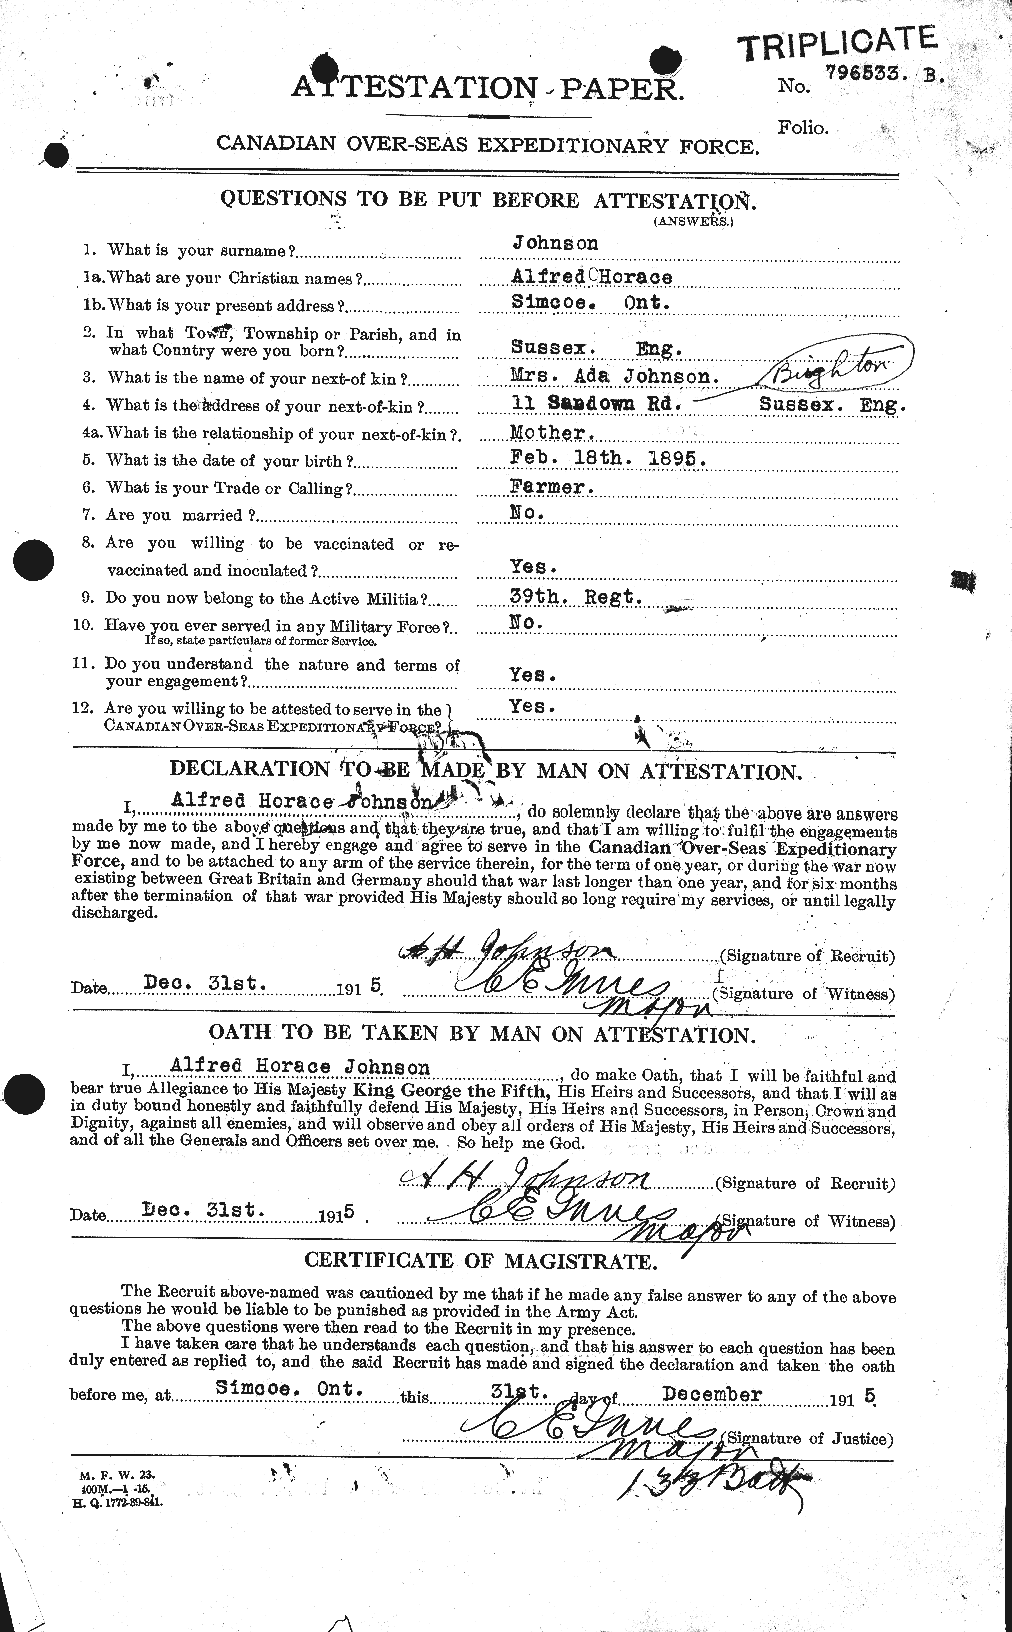 TRIPLICATE
ATTESTATION PAPER.
No. 796533. B.
Folio.
CANADIAN OVER-SEAS EXPEDITIONARY FORCE.
QUESTIONS TO BE PUT BEFORE ATTESTATION.
(ANSWERS.)
1. What is your surname? Johnson
1a. What are your Christian names? Alfred Horace
1b. What is your present address? Simcoe. Ont.
2. In what Town, Township or Parish, and in
what Country were you born? Sussex. Eng.
3. What is the name of your next-of kin? Mrs. Ada Johnson. Brighton
4. What is the address of your next-of-kin? 11 Sandown Rd. Sussex. Eng.
4a. What is the relationship of your next-of-kin? Mother.
5. What is the date of your birth? Feb. 18th. 1895.
6. What is your Trade or Calling? Farmer.
7. Are you married? No.
8. Are you willing to be vaccinated or re-
vaccinated and inoculated? Yes.
9. Do you now belong to the Active Militia? 39th. Regt.
10. Have you ever served in any Military Force? No.
If so, state particulars of former Service.
11. Do you understand the nature and terms of
your engagement? Yes.
12. Are you willing to be attested to serve in the } Yes.
CANADIAN OVER-SEAS EXPEDITIONARY FORCE?
DECLARATION TO BE MADE BY MAN ON ATTESTATION.
I, Alfred Horace Johnson, do solemnly declare that the above are answers
made by me to the above questions and that they are true, and that I am willing to fulfil the engagements
by me now made, and I hereby engage and agree to serve in the Canadian Over-Seas Expeditionary
Force, and to be attached to any arm of the service therein, for the term of one year, or during the war now
existing between Great Britain and Germany should that war last longer than one year, and for six months
after the termination of that war provided His Majesty should so long require my services, or until legally
discharged.
A H Johnson (Signature of Recruit)
Date Dec. 31st. 1915. C E Innes (Signature of Witness)
Major
OATH TO BE TAKEN BY MAN ON ATTESTATION.
I, Alfred Horace Johnson, do make Oath, that I will be faithful and
bear true Allegiance to His Majesty King George the Fifth, His Heirs and Successors, and that I will as
in duty bound honestly and faithfully defend His Majesty, His Heirs and Successors, in Person, Crown and
Dignity, against all enemies, and will observe and obey all orders of His Majesty, His Heirs and Successors,
and of all the Generals and Officers set over me. So help me God.
A H Johnson (Signature of Recruit)
Date Dec. 31st. 1915. C E Innes (Signature of Witness)
Major
CERTIFICATE OF MAGISTRATE.
The Recruit above-named was cautioned by me that if he made any false answer to any of the above
questions he would be liable to be punished as provided in the Army Act.
The above questions were then read to the Recruit in my presence.
I have taken care that he understands each question, and that his answer to each question has been
duly entered as replied to, and the said Recruit has made and signed the declaration and taken the oath
before me, at Simcoe. Ont. this 31st. day of December 1915
C E Innes (Signature of Justice)
Major
133 Batt
M. F. W. 23.
400M.—1 -15.
H. Q. 1772-39-841.